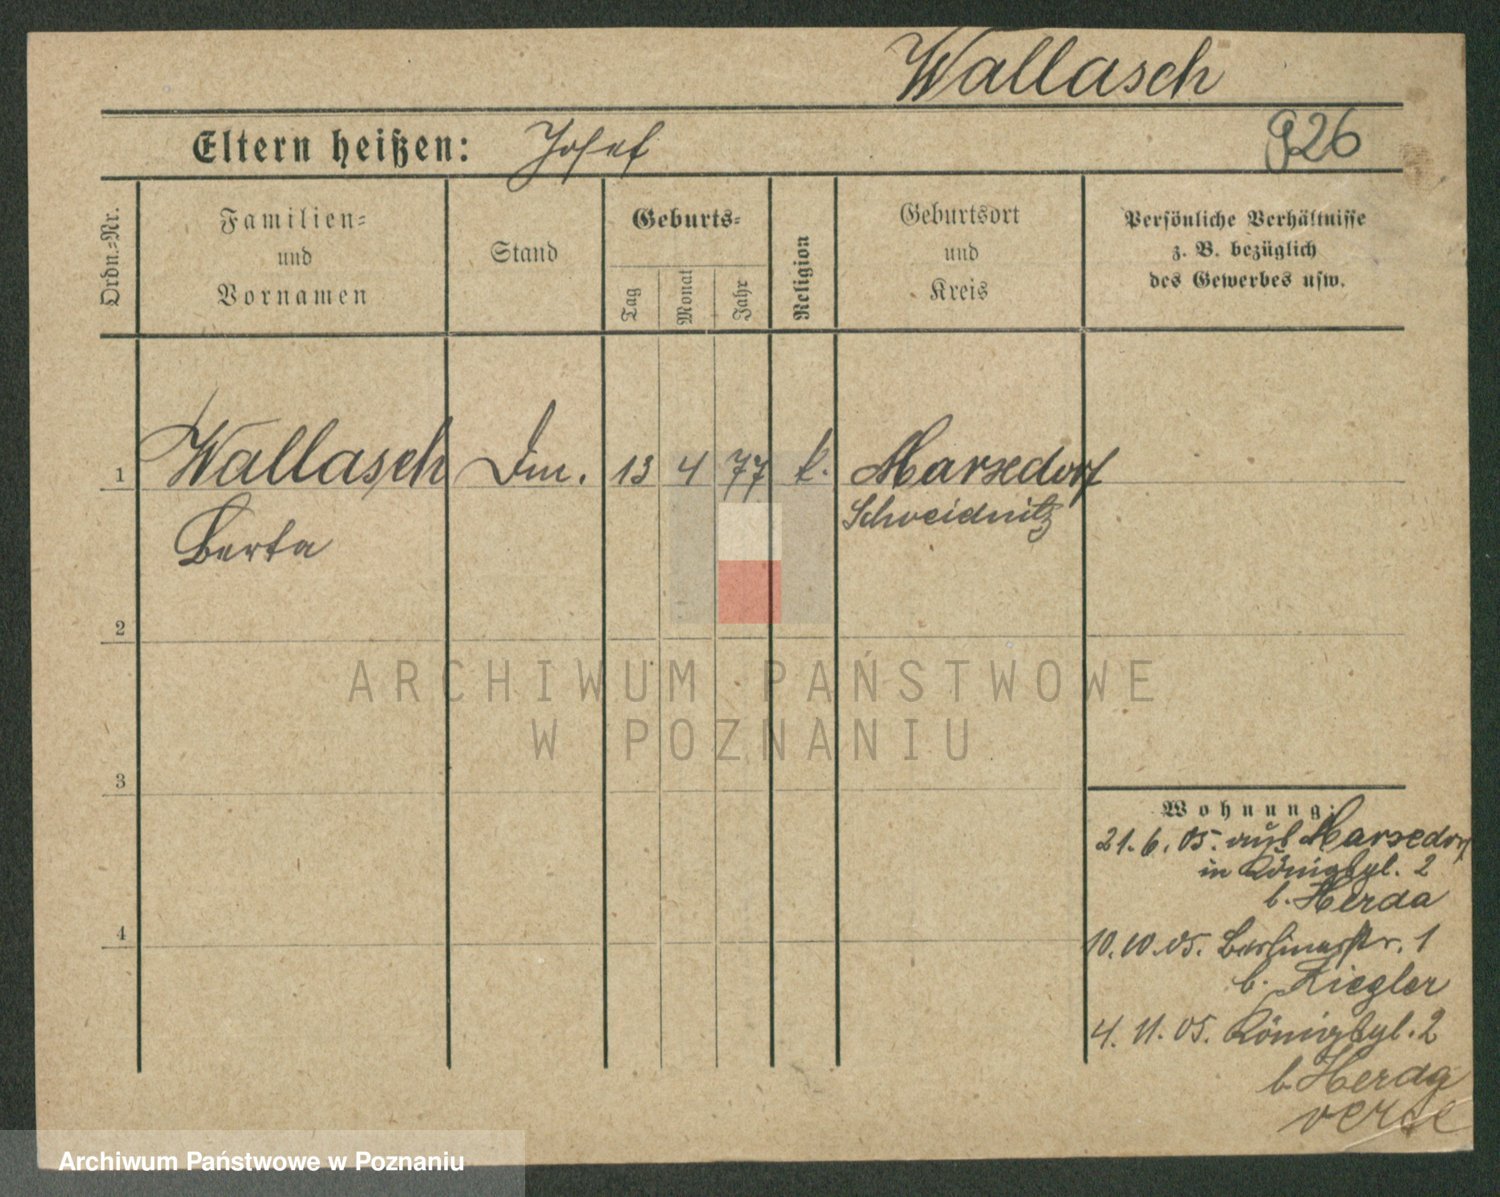 Wallasch
Eltern heißen: Josef
926
Ordn.-Nr.
Familien-
und
Vornamen
Stand
Geburts-
Tag
Monat
Jahr
Religion
Geburtsort
und
Kreis
Persönliche Verhältnisse
z. B. bezüglich
des Gewerbes usw.
1 Wallasch Dm. 13 4 77 k. Marxdorf
Schweidnitz
Berta
2
3
4
Wohnung:
21. 6. 05. aus Marxdorf
in Königspl. 2
b. Herda
10. 10. 05. Berlinerstr. 1
b. Ziegler
4. 11. 05. Königspl. 2
b. Herda
ARCHIWUM PAŃSTWOWE
W POZNANIU
Archiwum Państwowe w Poznaniu